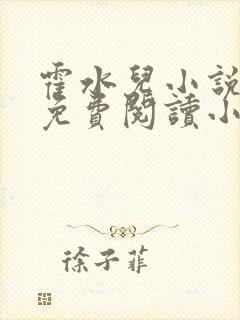 霍水兒小說
免費閱讀小
徐子菲